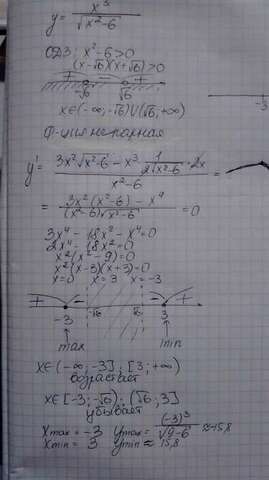 y = x³ / √(x²-6)
ОДЗ: x²-6>0
(x-√6)(x+√6)>0
+ - +
-√6 √6
x∈(-∞;-√6)∪(√6;+∞)
Ф-ция непарная
y' = (3x²√(x²-6) - x³ · 1/(2√(x²-6)) · 2x) / (x²-6) =
= (3x²(x²-6) - x⁴) / ((x²-6)√(x²-6)) = 0
3x⁴ - 18x² - x⁴ = 0
2x⁴ - 18x² = 0
x²(x²-9) = 0
x²(x-3)(x+3) = 0
x=0 x=3 x=-3
+ - - +
-3 -√6 √6 3
max min
x∈(-∞;-3]; [3;+∞)
возрастает
x∈[-3;-√6); (√6;3]
убывает
xmax = -3 ymax = (-3)³ / √(9-6) ≈ -15,8
xmin = 3 ymin ≈ 15,8
-3